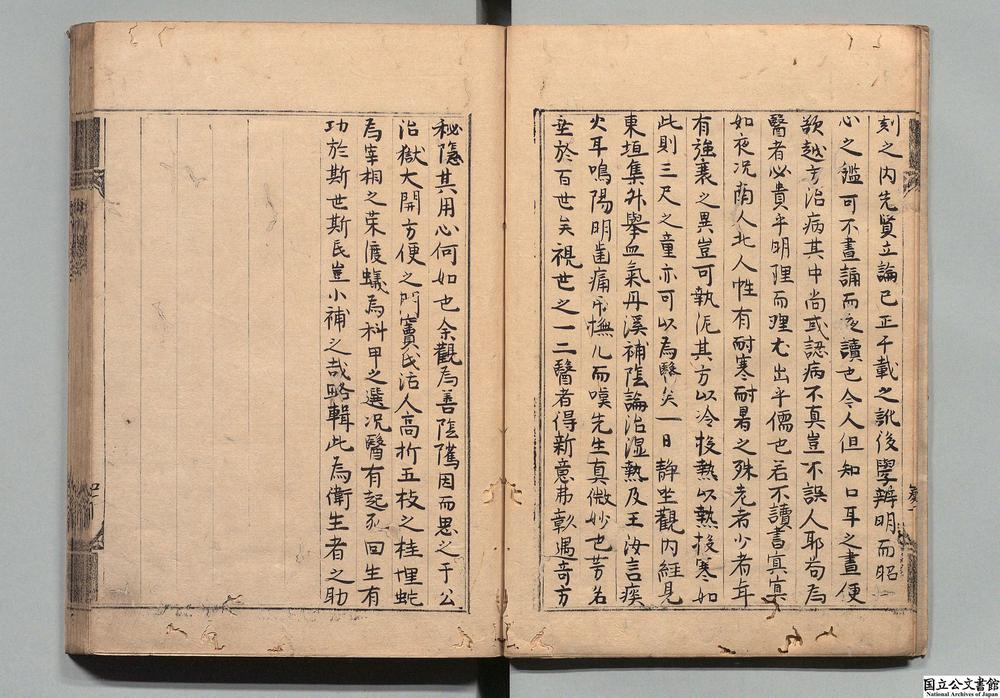 刻之内先賢立論已正千載之訛後學辨明而昭
心之鑑可不盡誦而讀也今人但知口耳之晝便
欲越方治病其中尚或認病不真豈不誤人耶苟為
醫者必貴乎明理而理尤出乎儒也若不讀書寘寘
如夜况南人北人性有耐寒耐暑之殊老者少者年
有強衰之異豈可執泥其方以冷投熱以熱投寒如
此則三尺之童亦可以為醫矣一日靜坐觀内經見
東垣集外擧血氣丹溪補陰論治濕熱及王汝言瘼
火耳鳴陽明齒痛撫几而嘆先生真微妙也芳名
垂於百世矣視世之一二醫者得新意弗彰遇奇方
秘隱其用心何如也余觀為善陰隲因而思之于公
治獄大開方便之門竇氏活人高折五枝之桂埋蛇
為宰相之荣渡蟻為科甲之選况醫有起死回生有
功於斯世斯民豈小補之哉略輯此為衛生者之助
国立公文書館
National Archives of Japan